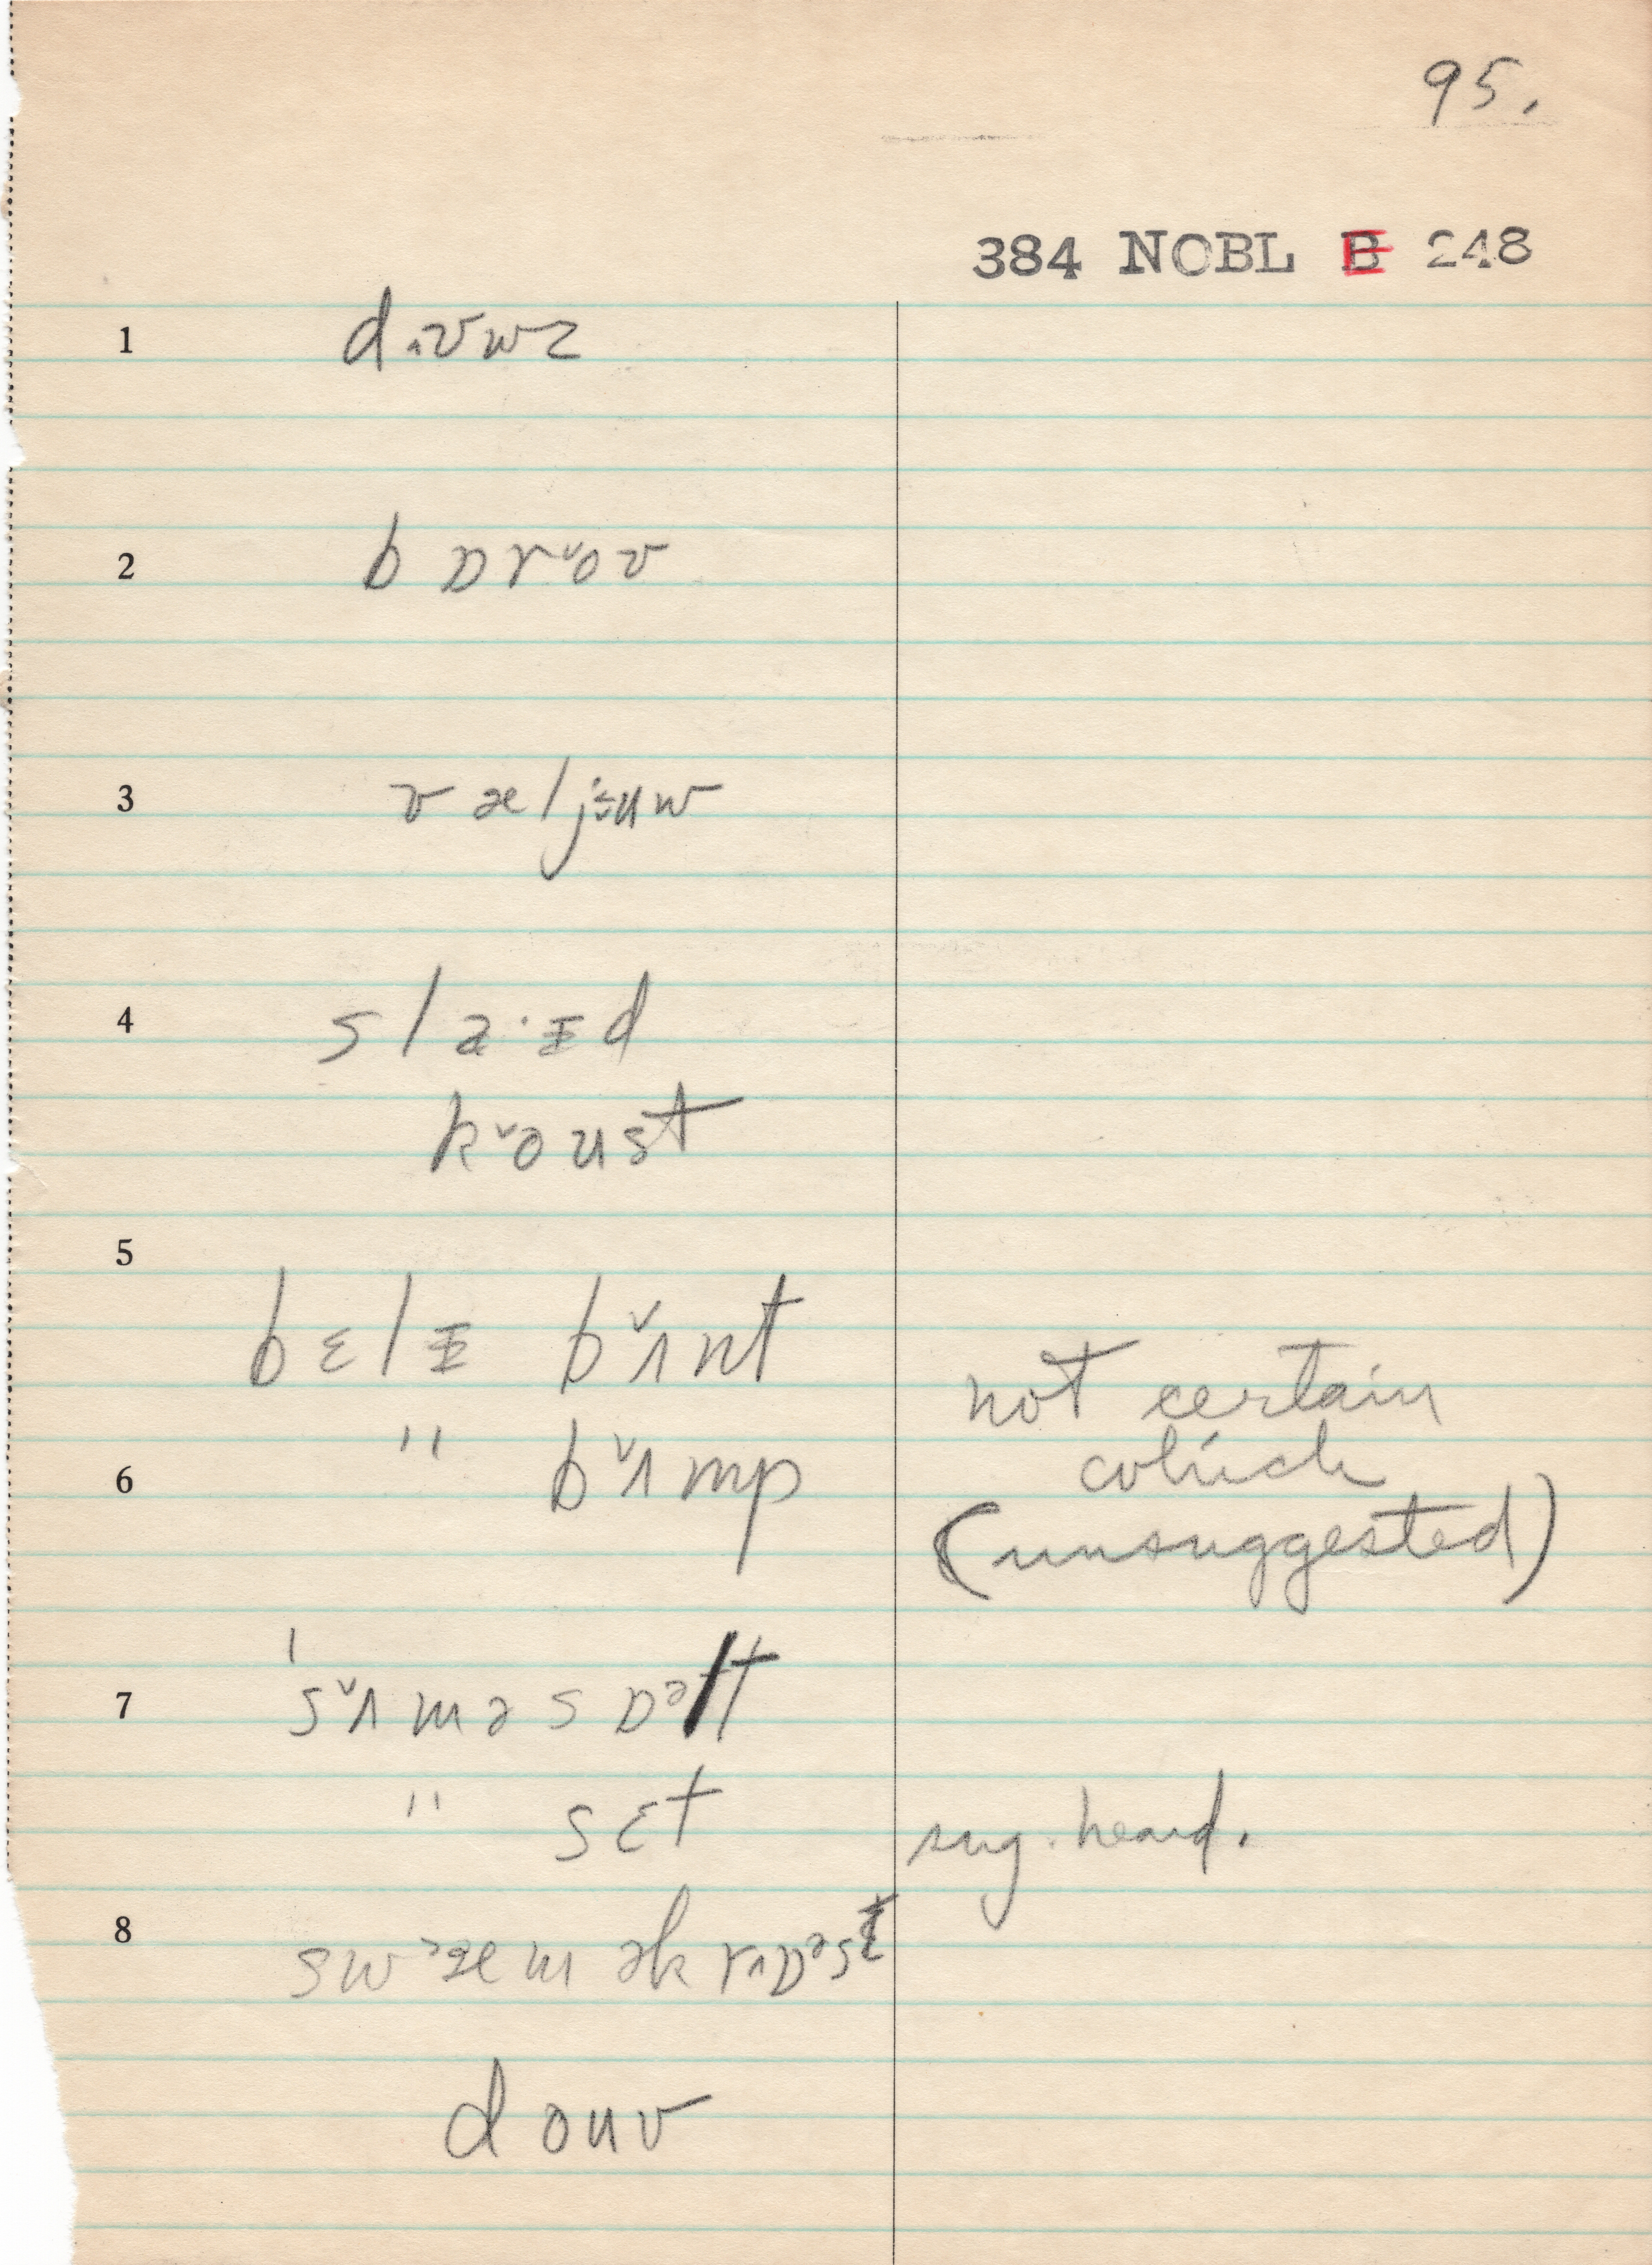 95.
384 NOBL B 248
1 d.ʌvwz
2 b ɒ r ˅o v
3 v æ l j ɜ u w
4 s l a · ɪ d
k ˅o u s t
5
b ɛ l ɪ b ˅ʌ n t
not certain
6 " b ˅ʌ m p
which
(unsuggested)
7 ˈs ˅ʌ m ə s ɒ ᵊ l t
" s ɛ t sug. heard.
8 s w ˃æ m ə k r ʌ ɒ ᵊ s t
d o u v